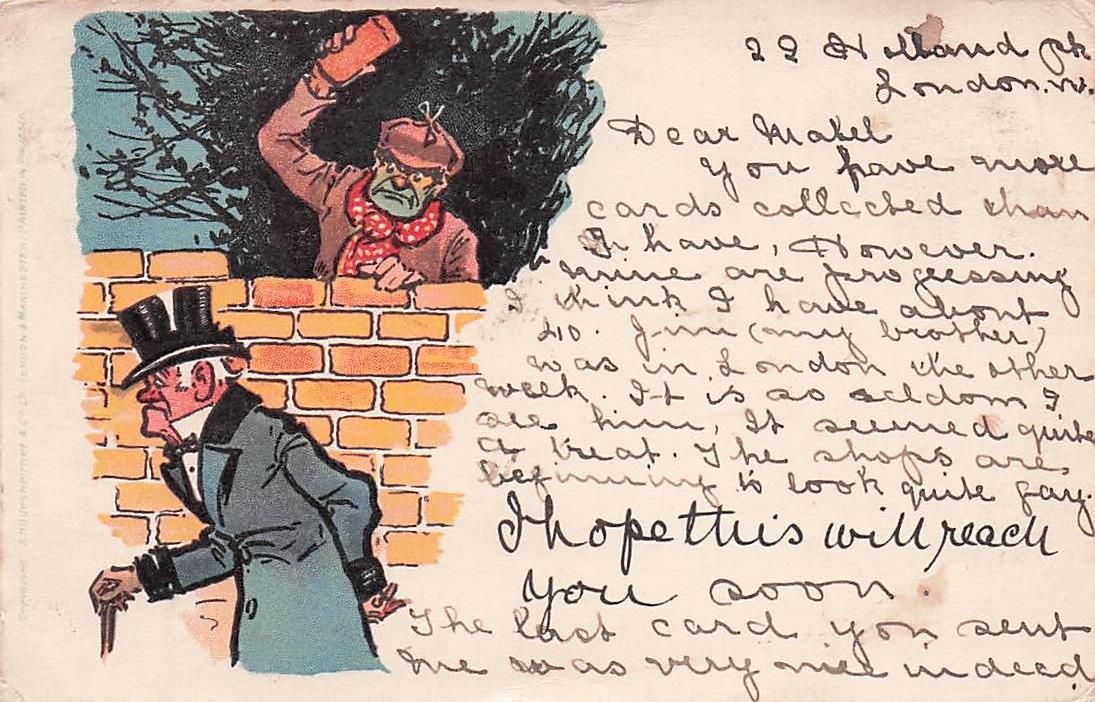 22 Holland pk
London. W.
Dear Mabel
You have more
cards collected than
I have, However.
mine are progessing
I think I have about
40. Jim (my brother)
was in London the other
week. It is so seldom I
see him, It seemed quite
a treat. The shops are
beginning to look quite gay.
I hope this will reach
you soon.
The last card you sent
me was very nice indeed
COPYRIGHT S. HILDESHEIMER & CO. LD. LONDON & MANCHESTER. PRINTED IN PRUSSIA